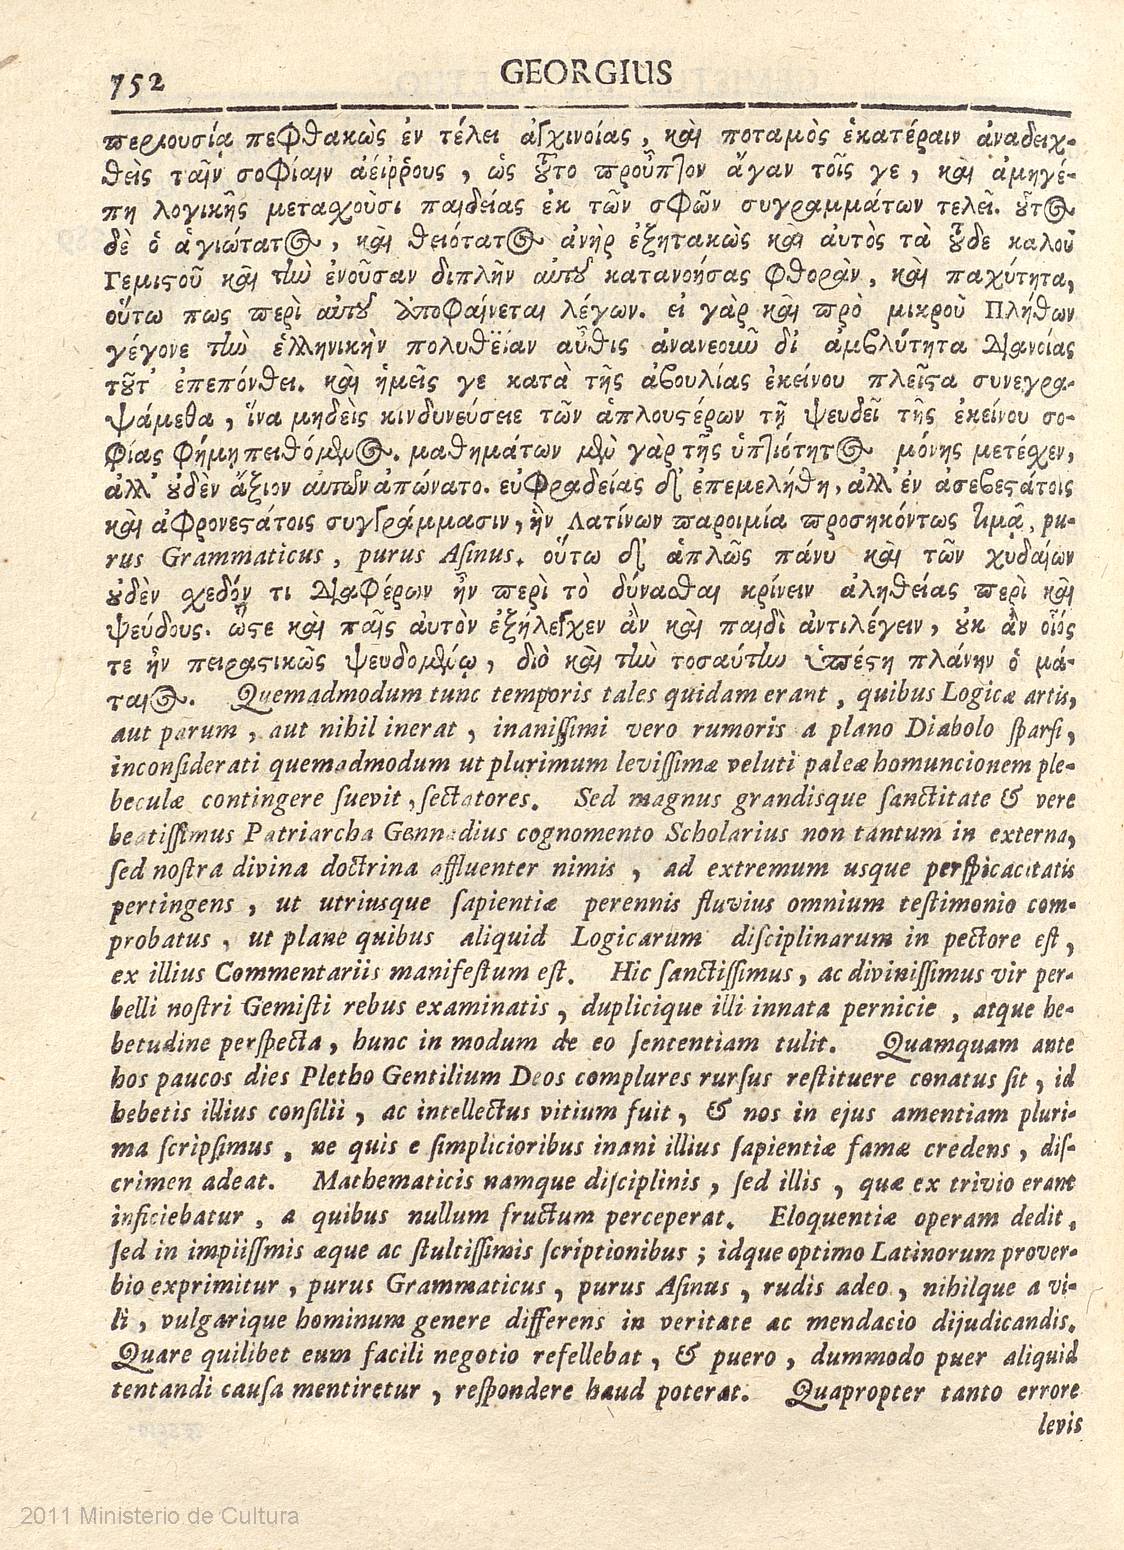 752 GEORGIUS
περιουσίᾳ πεφθακὼς ἐν τέλει ἀγχινοίας, καὶ ποταμὸς ἑκατέραιν ἀναδειχ-
θεὶς ταῖν σοφίαιν ἀείῤῥους, ὡς τοῦτο προὖπτον ἄγαν τοῖς γε, καὶ ἀμηγέ-
πη λογικῆς μεταχοῦσι παιδείας ἐκ τῶν σφῶν συγραμμάτων τελεῖ. οὗτος
δὲ ὁ ἁγιώτατος, καὶ θειότατος ἀνὴρ ἐξητακὼς καὶ αὐτὸς τὰ τοῦδε καλοῦ
Γεμιστοῦ καὶ τὴν ἐνοῦσαν διπλῆν αὐτοῦ κατανοήσας φθορὰν, καὶ παχύτητα,
οὕτω πως περὶ αὐτοῦ ἀποφαίνεται λέγων. εἰ γὰρ καὶ πρὸ μικροῦ Πλήθων
γέγονε τὴν ἑλληνικὴν πολυθεΐαν αὖθις ἀνανεοῦν δι' ἀμβλύτητα διανοίας
τοῦτ' ἐπεπόνθει. καὶ ἡμεῖς γε κατὰ τῆς ἀβουλίας ἐκείνου πλεῖστα συνεγρα-
ψάμεθα, ἵνα μηδεὶς κινδυνεύσειε τῶν ἁπλουστέρων τῇ ψευδεῖ τῆς ἐκείνου σο-
φίας φήμῃ πειθόμενος. μαθημάτων μὲν γὰρ τῆς ὑπτιότητος μόνης μετέχεν,
ἀλλ' οὐδὲν ἄξιον αὐτῶν ἀπώνατο. ευφραδείας δ' ἐπεμελήθη, ἀλλ' ἐν ἀσεβεστάτοις
καὶ ἀφρονεστάτοις συγγράμμασιν, ἣν Λατίνων παροιμία προσηκόντως τιμᾷ, pu-
rus Grammaticus, purus Asinus. οὕτω δ' ἁπλῶς πάνυ καὶ τῶν χυδαίων
οὐδὲν σχεδόν τι διαφέρων ἦν περὶ τὸ δύνασθαι κρίνειν ἀληθείας περὶ καὶ
ψεύδους. ὥστε καὶ παῖς αὐτὸν ἐξήλεγχεν ἂν καὶ παιδὶ ἀντιλέγειν, οὐκ ἂν οἷός
τε ἦν πειραστικῶς ψευδομένῳ, διὸ καὶ τὴν τοσαύτην ὑπέστη πλάνην ὁ μά-
ταιος. Quemadmodum tunc temporis tales quidam erant, quibus Logicæ artis,
aut parum, aut nihil inerat, inanissimi vero rumoris a plano Diabolo sparsi,
inconsiderati quemadmodum ut plurimum levissimæ veluti paleæ homuncionem ple-
beculæ contingere suevit, sectatores. Sed magnus grandisque sanctitate & vere
beatissimus Patriarcha Gennadius cognomento Scholarius non tantum in externa,
sed nostra divina doctrina affluenter nimis, ad extremum usque perspicacitatis
pertingens, ut utriusque sapientiæ perennis fluvius omnium testimonio com-
probatus, ut plane quibus aliquid Logicarum disciplinarum in pectore est,
ex illius Commentariis manifestum est. Hic sanctissimus, ac divinissimus vir per-
belli nostri Gemisti rebus examinatis, duplicique illi innata pernicie, atque he-
betudine perspecta, hunc in modum de eo sententiam tulit. Quamquam ante
hos paucos dies Pletho Gentilium Deos complures rursus restituere conatus sit, id
hebetis illius consilii, ac intellectus vitium fuit, & nos in ejus amentiam pluri-
ma scripsimus, ne quis e simplicioribus inani illius sapientiæ famæ credens, dis-
crimen adeat. Mathematicis namque disciplinis, sed illis, quæ ex trivio erant
inficiebatur, a quibus nullum fructum perceperat. Eloquentiæ operam dedit,
sed in impiissmis æque ac stultissimis scriptionibus; idque optimo Latinorum prover-
bio exprimitur, purus Grammaticus, purus Asinus, rudis adeo, nihilque a vi-
li, vulgarique hominum genere differens in veritate ac mendacio dijudicandis.
Quare quilibet eum facili negotio refellebat, & puero, dummodo puer aliquid
tentandi causa mentiretur, respondere haud poterat. Quapropter tanto errore
levis
2011 Ministerio de Cultura